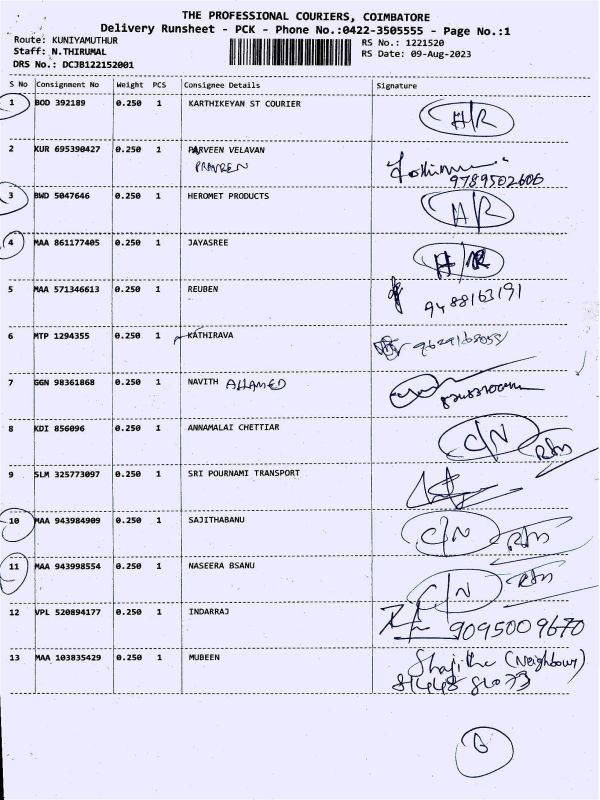 THE PROFESSIONAL COURIERS, COIMBATORE
Delivery Runsheet - PCK - Phone No.:0422-3505555 - Page No.:1
Route: KUNIYAMUTHUR RS No.: 1221520
Staff: N.THIRUMAL RS Date: 09-Aug-2023
DRS No.: DCJB122152001
S No Consignment No Weight PCS Consignee Details Signature
1 BOD 392189 0.250 1 KARTHIKEYAN ST COURIER H/R
2 KUR 695390427 0.250 1 PARVEEN VELAVAN
PRAVEEN 9789502606
3 BWD 5047646 0.250 1 HEROMET PRODUCTS H/R
4 MAA 861177405 0.250 1 JAYASREE H/R
5 MAA 571346613 0.250 1 REUBEN 9488163191
6 MTP 1294355 0.250 1 KATHIRAVA
7 GGN 98361868 0.250 1 NAVITH AHAMED
8 KDI 856096 0.250 1 ANNAMALAI CHETTIAR C/N
9 SLM 325773097 0.250 1 SRI POURNAMI TRANSPORT
10 MAA 943984909 0.250 1 SAJITHABANU C/N
11 MAA 943998554 0.250 1 NASEERA BSANU C/N
12 VPL 520894177 0.250 1 INDARRAJ 9095009670
13 MAA 103835429 0.250 1 MUBEEN Shajitha (Neighbour)